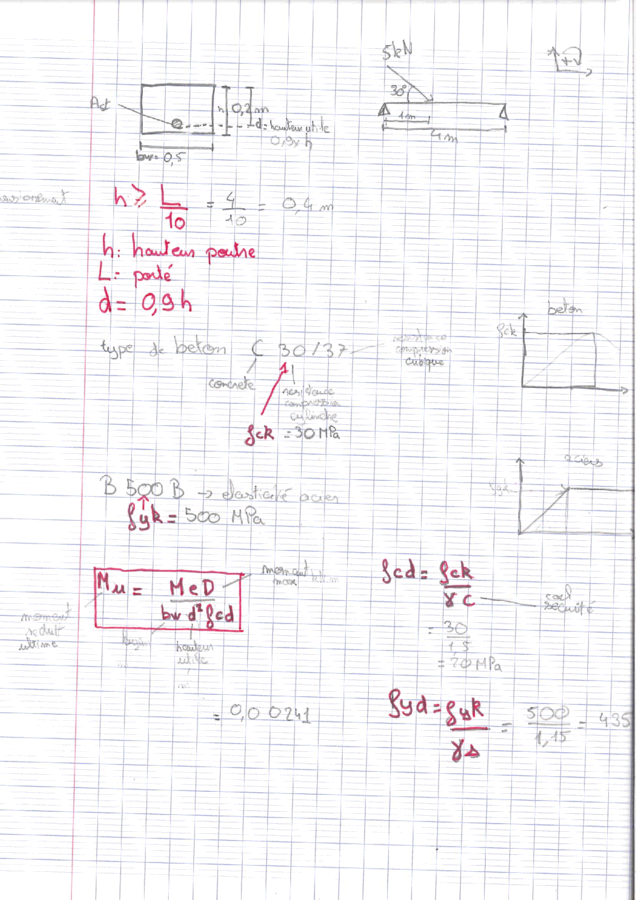 5kN
+
30°
Ast
h 0,2 m
d = hauteur utile
0,9 x h
1m
4m
bw= 0,5
h ≥ L/10 = 4/10 = 0,4 m
h: hauteur poutre
L= porté
d= 0,9h
beton
fck
type de beton C 30/37
resistance
compression
cubique
concrete
resistance
compression
cylindre
fck = 30 MPa
aciers
fyd
B 500 B → elasticité acier
fyk = 500 MPa
Mu = MeD / bw d² fcd
moment
max
moment
réduit
ultime
hauteur
utile
...
...
fcd = fck / γc
coef
sécurité
= 30 / 1,5
= 20 MPa
= 0,00241
fyd = fyk / γs = 500 / 1,15 = 435